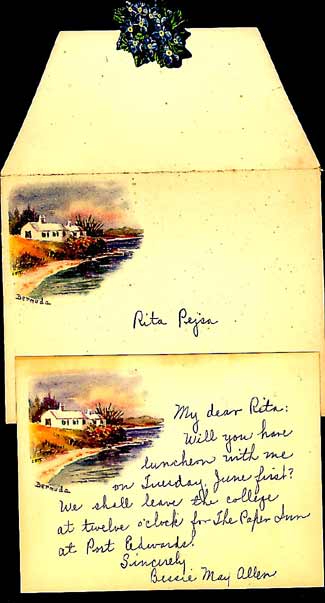 Bermuda
Rita Pejsa
Bermuda
My dear Rita:
Will you have
luncheon with me
on Tuesday, June first?
We shall leave the college
at twelve o'clock for The Paper Inn
at Port Edwards.
Sincerely,
Bessie May Allen